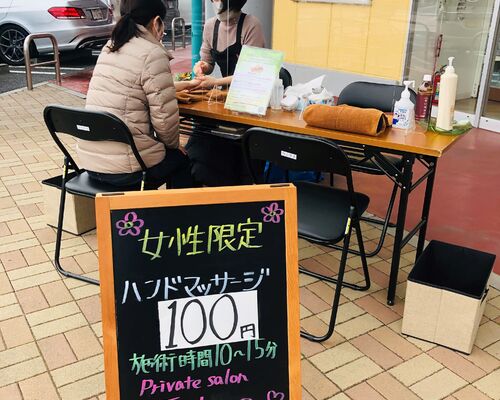 女性限定
ハンドマッサージ
100円
施術時間10〜15分
Private salon